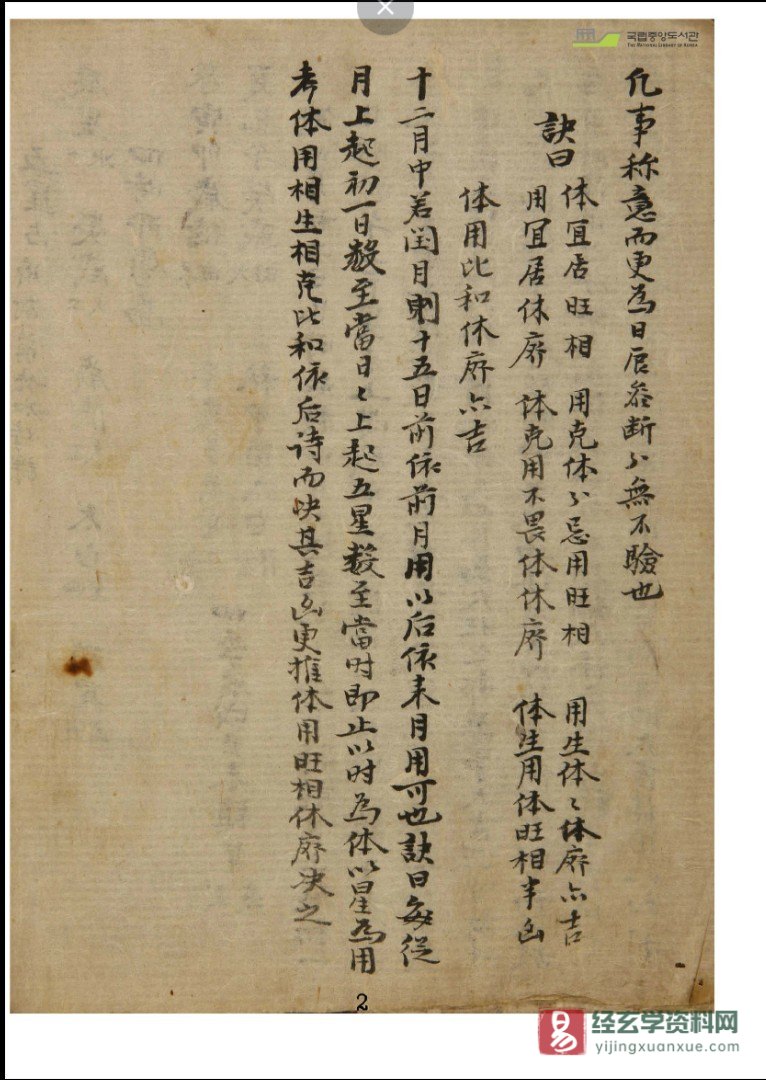 국립중앙도서관
THE NATIONAL LIBRARY OF KOREA
凡事称意而更為日辰叅断必無不驗也
訣曰
体宜居旺相 用克体必忌用旺相 用生体〻体廢亦吉
用宜居休廢 体克用不畏体休廢 体生用体旺相半凶
体用比和休廢亦吉
十二月中若闰月則十五日前依前月用以后依来月用可也訣曰每從
月上起初一日数至當日〻上起五星数至當时即止以时為体以星為用
考体用相生相克比和依后诗而决其吉凶更推体用旺相休廢决之
2
易
经玄学资料网
yijingxuanxue.com